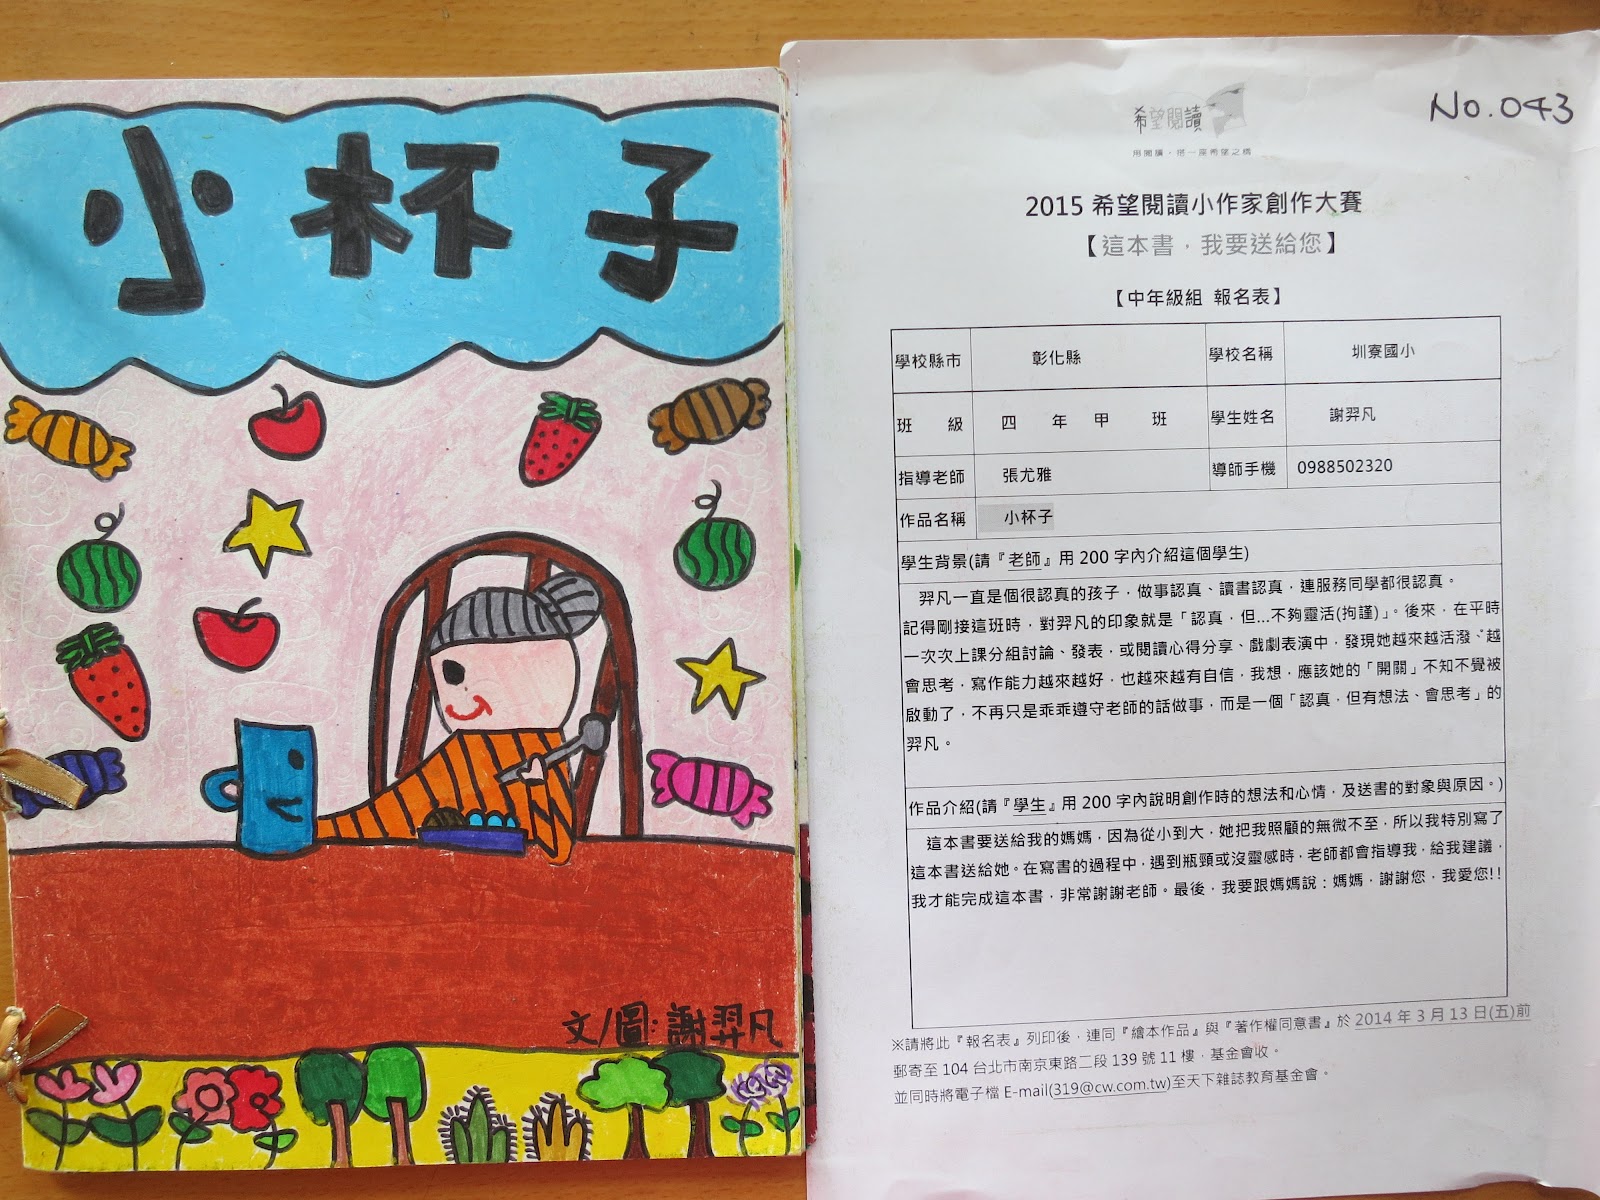 小杯子
文/圖:謝羿凡
No.043
希望閱讀
用閱讀，搭一座希望之橋
2015 希望閱讀小作家創作大賽
【這本書，我要送給您】
【中年級組 報名表】
學校縣市 彰化縣 學校名稱 圳寮國小
班 級 四 年 甲 班 學生姓名 謝羿凡
指導老師 張尤雅 導師手機 0988502320
作品名稱 小杯子
學生背景(請『老師』用 200 字內介紹這個學生)
羿凡一直是個很認真的孩子，做事認真、讀書認真，連服務同學都很認真。
記得剛接這班時，對羿凡的印象就是「認真，但...不夠靈活(拘謹)」。後來，在平時
一次次上課分組討論、發表，或閱讀心得分享、戲劇表演中，發現她越來越活潑、越
會思考，寫作能力越來越好，也越來越有自信，我想，應該她的「開關」不知不覺被
啟動了，不再只是乖乖遵守老師的話做事，而是一個「認真，但有想法、會思考」的
羿凡。
作品介紹(請『學生』用 200 字內說明創作時的想法和心情，及送書的對象與原因。)
這本書要送給我的媽媽，因為從小到大，她把我照顧的無微不至，所以我特別寫了
這本書送給她。在寫書的過程中，遇到瓶頸或沒靈感時，老師都會指導我，給我建議，
我才能完成這本書，非常謝謝老師。最後，我要跟媽媽說：媽媽，謝謝您，我愛您!!
※請將此『報名表』列印後，連同『繪本作品』與『著作權同意書』於 2014 年 3 月 13 日(五)前
郵寄至 104 台北市南京東路二段 139 號 11 樓，基金會收。
並同時將電子檔 E-mail(319@cw.com.tw)至天下雜誌教育基金會。